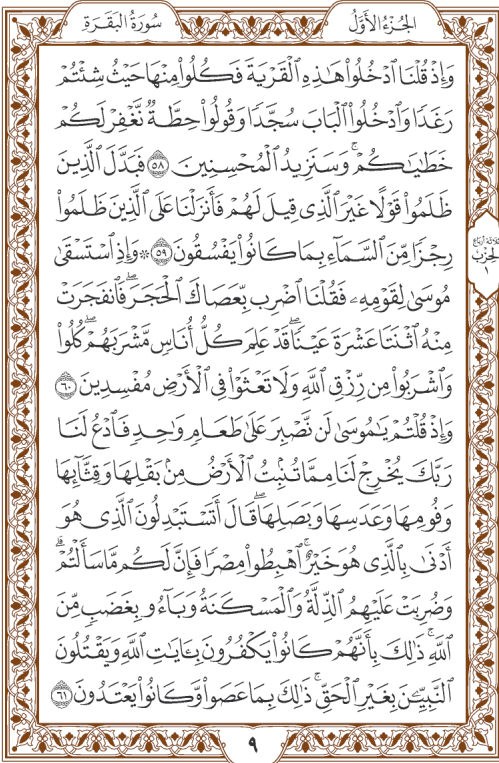 الجُزْءُ الأَوَّلُ
سُورَةُ البَقَرَةِ
وَإِذْ قُلْنَا ٱدْخُلُوا۟ هَـٰذِهِ ٱلْقَرْيَةَ فَكُلُوا۟ مِنْهَا حَيْثُ شِئْتُمْ
رَغَدًا وَٱدْخُلُوا۟ ٱلْبَابَ سُجَّدًا وَقُولُوا۟ حِطَّةٌ نَّغْفِرْ لَكُمْ
خَطَـٰيَـٰكُمْ ۚ وَسَنَزِيدُ ٱلْمُحْسِنِينَ ٥٨ فَبَدَّلَ ٱلَّذِينَ
ظَلَمُوا۟ قَوْلًا غَيْرَ ٱلَّذِى قِيلَ لَهُمْ فَأَنزَلْنَا عَلَى ٱلَّذِينَ ظَلَمُوا۟
رِجْزًا مِّنَ ٱلسَّمَآءِ بِمَا كَانُوا۟ يَفْسُقُونَ ٥٩ ۞ وَإِذِ ٱسْتَسْقَىٰ
مُوسَىٰ لِقَوْمِهِۦ فَقُلْنَا ٱضْرِب بِّعَصَاكَ ٱلْحَجَرَ ۖ فَٱنفَجَرَتْ
مِنْهُ ٱثْنَتَا عَشْرَةَ عَيْنًا ۖ قَدْ عَلِمَ كُلُّ أُنَاسٍ مَّشْرَبَهُمْ ۖ كُلُوا۟
وَٱشْرَبُوا۟ مِن رِّزْقِ ٱللَّهِ وَلَا تَعْثَوْا۟ فِى ٱلْأَرْضِ مُفْسِدِينَ ٦٠
وَإِذْ قُلْتُمْ يَـٰمُوسَىٰ لَن نَّصْبِرَ عَلَىٰ طَعَامٍ وَٰحِدٍ فَٱدْعُ لَنَا
رَبَّكَ يُخْرِجْ لَنَا مِمَّا تُنۢبِتُ ٱلْأَرْضُ مِنۢ بَقْلِهَا وَقِثَّآئِهَا
وَفُومِهَا وَعَدَسِهَا وَبَصَلِهَا ۖ قَالَ أَتَسْتَبْدِلُونَ ٱلَّذِى هُوَ
أَدْنَىٰ بِٱلَّذِى هُوَ خَيْرٌ ۚ ٱهْبِطُوا۟ مِصْرًا فَإِنَّ لَكُم مَّا سَأَلْتُمْ ۗ
وَضُرِبَتْ عَلَيْهِمُ ٱلذِّلَّةُ وَٱلْمَسْكَنَةُ وَبَآءُو بِغَضَبٍ مِّنَ
ٱللَّهِ ۗ ذَٰلِكَ بِأَنَّهُمْ كَانُوا۟ يَكْفُرُونَ بِـَٔايَـٰتِ ٱللَّهِ وَيَقْتُلُونَ
ٱلنَّبِيِّـۧنَ بِغَيْرِ ٱلْحَقِّ ۗ ذَٰلِكَ بِمَا عَصَوا۟ وَّكَانُوا۟ يَعْتَدُونَ ٦١
ثلاثة أرباع
الحزب
١
٩